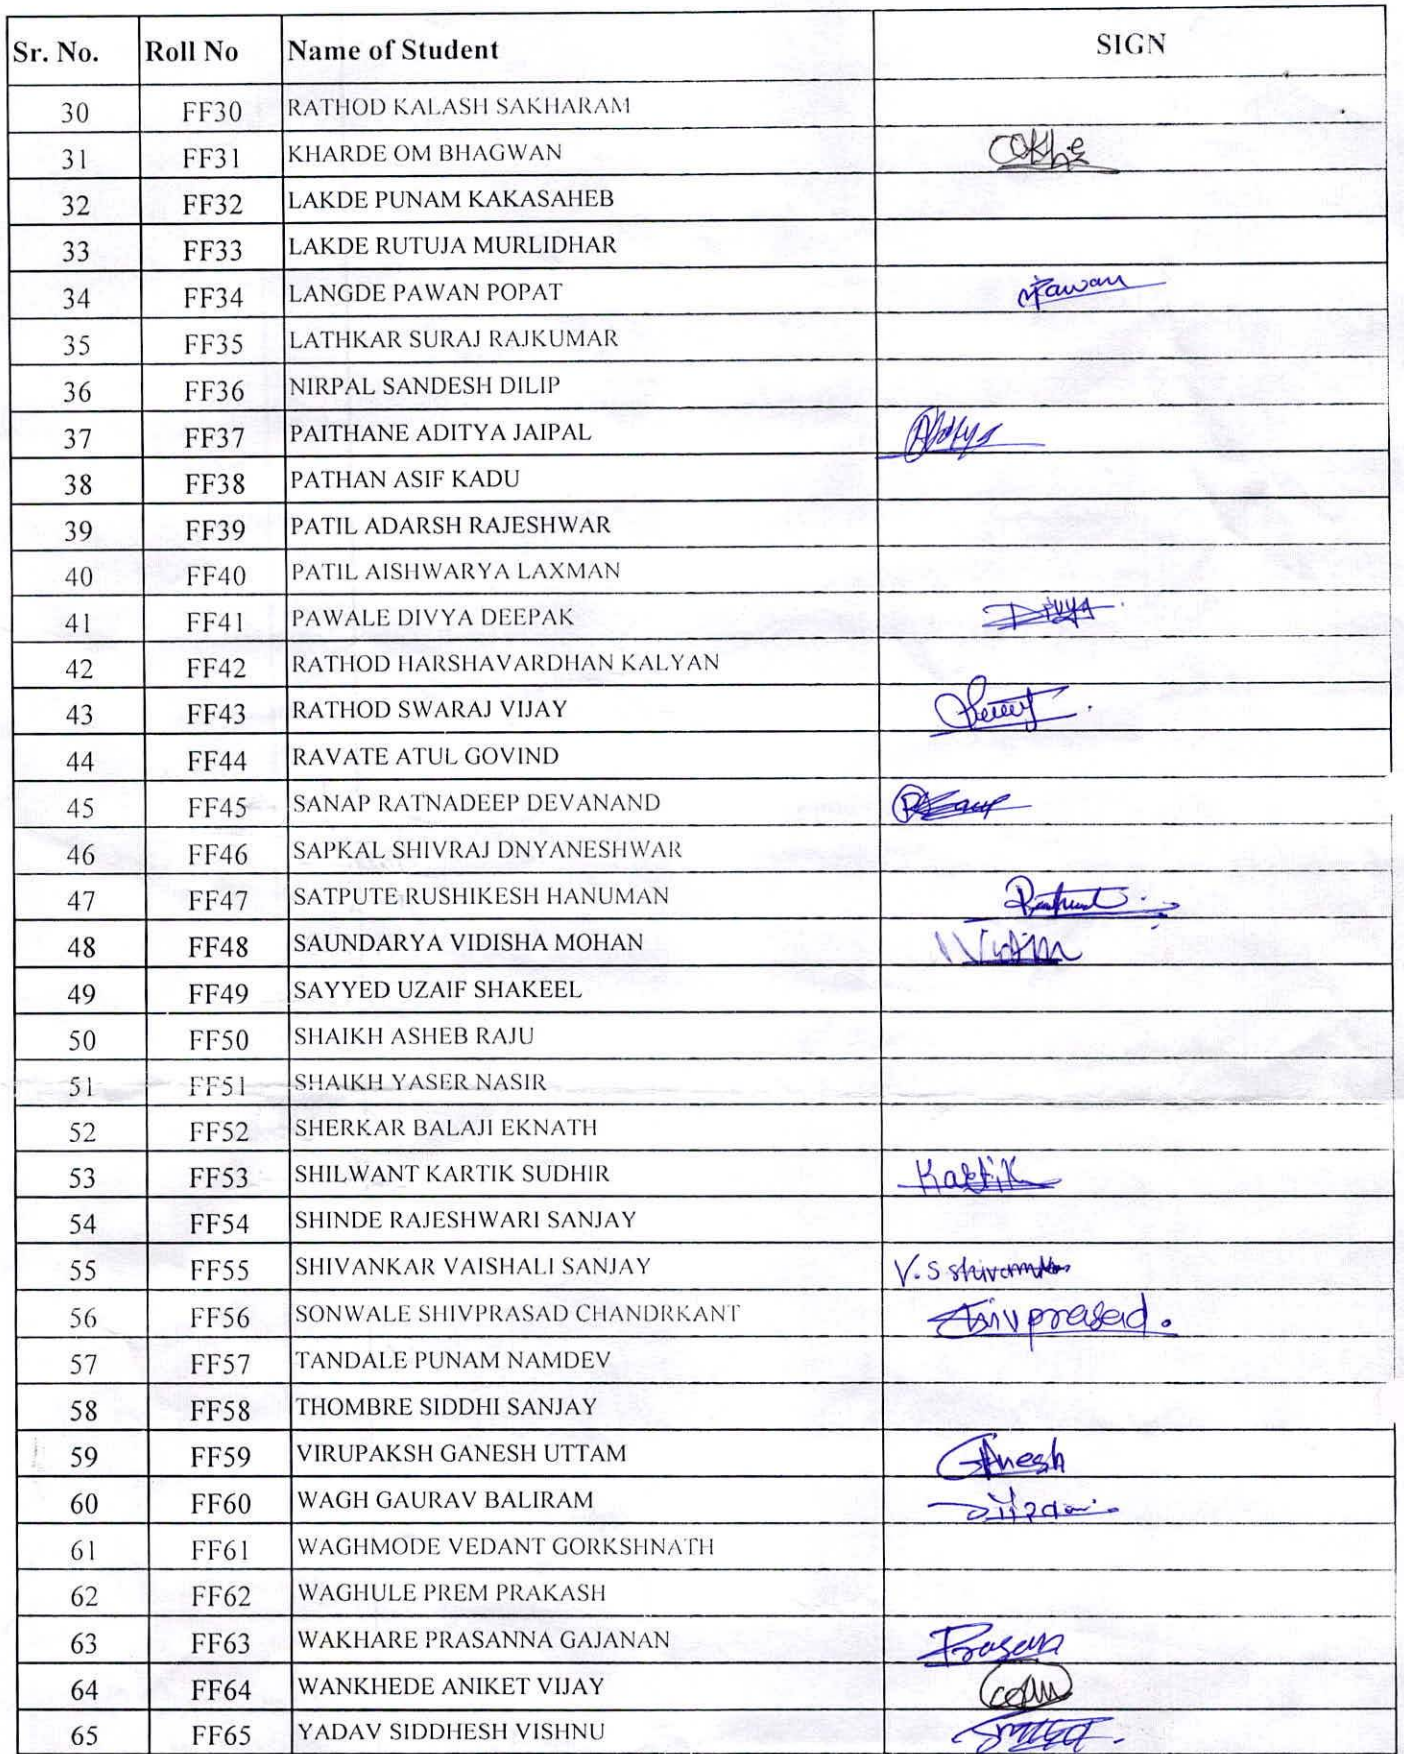 Sr. No. Roll No Name of Student SIGN
30 FF30 RATHOD KALASH SAKHARAM
31 FF31 KHARDE OM BHAGWAN
32 FF32 LAKDE PUNAM KAKASAHEB
33 FF33 LAKDE RUTUJA MURLIDHAR
34 FF34 LANGDE PAWAN POPAT Pawan
35 FF35 LATHKAR SURAJ RAJKUMAR
36 FF36 NIRPAL SANDESH DILIP
37 FF37 PAITHANE ADITYA JAIPAL
38 FF38 PATHAN ASIF KADU
39 FF39 PATIL ADARSH RAJESHWAR
40 FF40 PATIL AISHWARYA LAXMAN
41 FF41 PAWALE DIVYA DEEPAK Divya
42 FF42 RATHOD HARSHAVARDHAN KALYAN
43 FF43 RATHOD SWARAJ VIJAY
44 FF44 RAVATE ATUL GOVIND
45 FF45 SANAP RATNADEEP DEVANAND
46 FF46 SAPKAL SHIVRAJ DNYANESHWAR
47 FF47 SATPUTE RUSHIKESH HANUMAN
48 FF48 SAUNDARYA VIDISHA MOHAN
49 FF49 SAYYED UZAIF SHAKEEL
50 FF50 SHAIKH ASHEB RAJU
51 FF51 SHAIKH YASER NASIR
52 FF52 SHERKAR BALAJI EKNATH
53 FF53 SHILWANT KARTIK SUDHIR Kartik
54 FF54 SHINDE RAJESHWARI SANJAY
55 FF55 SHIVANKAR VAISHALI SANJAY V.S shivankar
56 FF56 SONWALE SHIVPRASAD CHANDRKANT Shivprasad.
57 FF57 TANDALE PUNAM NAMDEV
58 FF58 THOMBRE SIDDHI SANJAY
59 FF59 VIRUPAKSH GANESH UTTAM Ganesh
60 FF60 WAGH GAURAV BALIRAM
61 FF61 WAGHMODE VEDANT GORKSHNATH
62 FF62 WAGHULE PREM PRAKASH
63 FF63 WAKHARE PRASANNA GAJANAN
64 FF64 WANKHEDE ANIKET VIJAY
65 FF65 YADAV SIDDHESH VISHNU